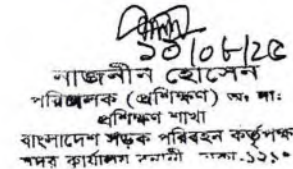 ১০/০৮/২৫
নাজনীন হোসেন
পরিচালক (প্রশিক্ষণ) অঃ দাঃ
প্রশিক্ষণ শাখা
বাংলাদেশ সড়ক পরিবহন কর্তৃপক্ষ
সদর কার্যালয় বনানী ঢাকা-১২১০